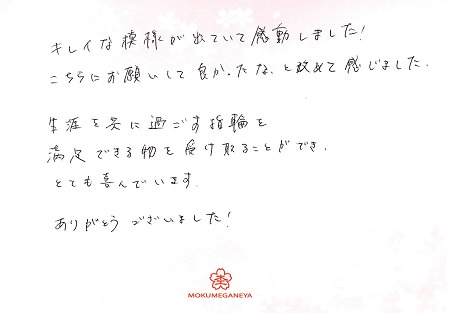 キレイな模様が出ていて感動しました!
こちらにお願いして良かったな、と改めて感じました。
生涯を共に過ごす指輪を
満足できる物を受け取ることができ、
とても喜んでいます。
ありがとうございました!
杢
MOKUMEGANEYA